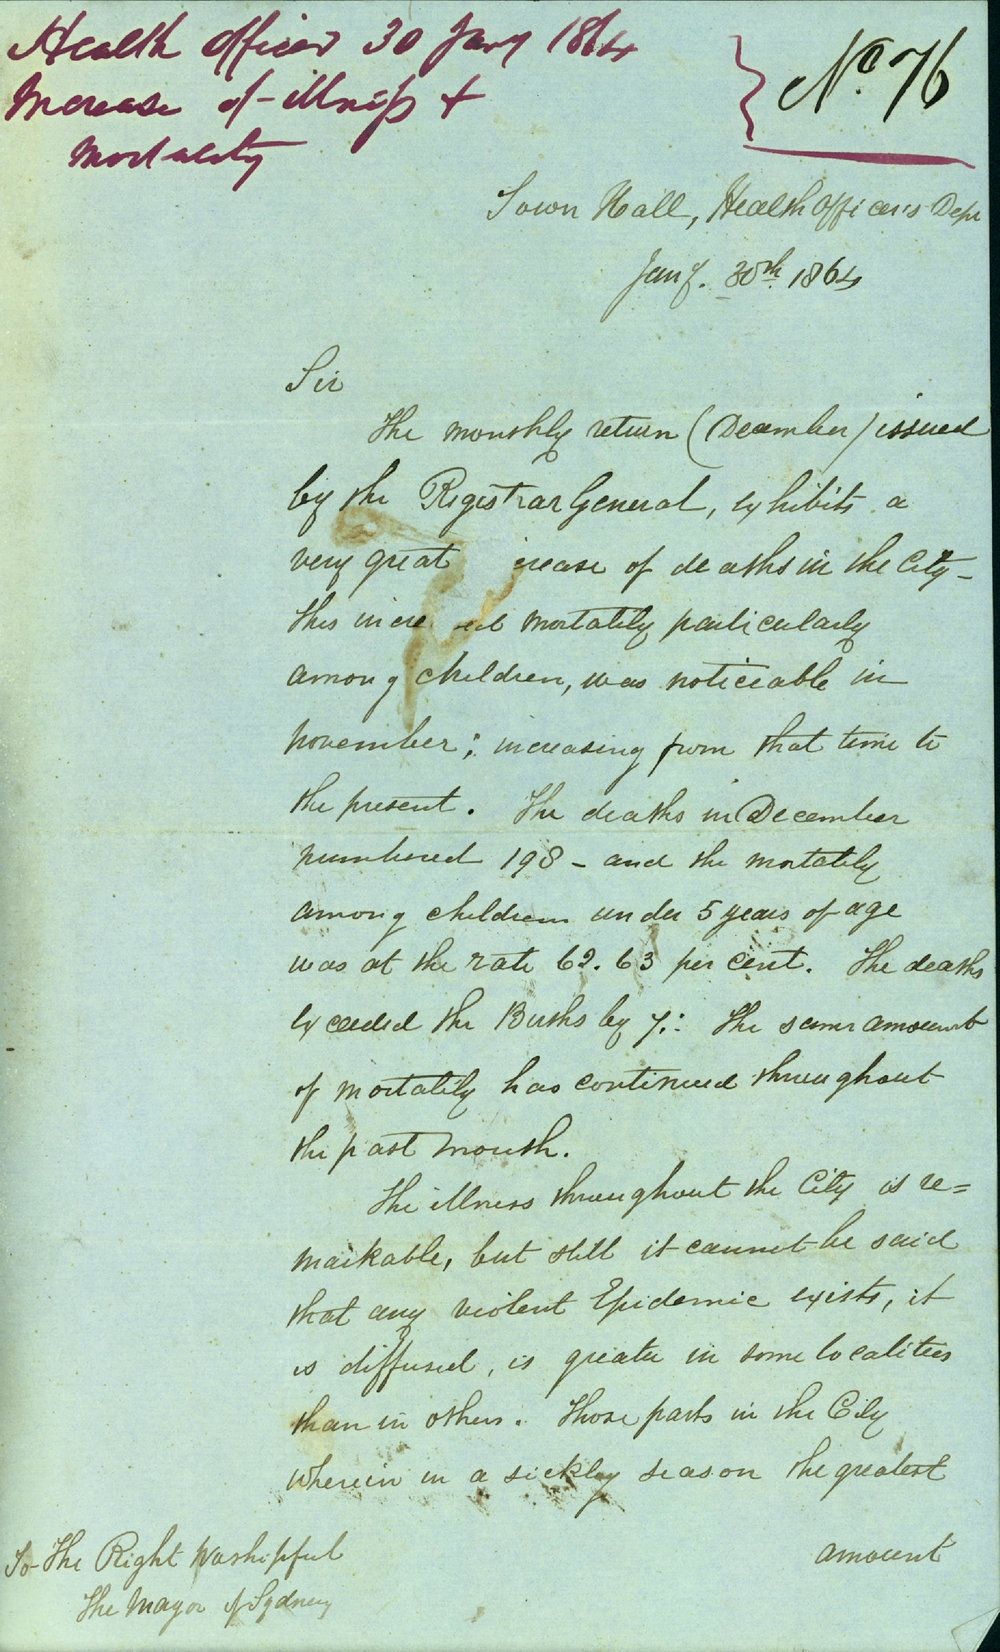 Health Officer 30 Jany 1864
Increase of illness &
Mortality
No. 76
Town Hall, Health Officer's Dept
Jany. 30th 1864
Sir
The monthly return (December) issued
by the Registrar General, exhibits a
very great crease of deaths in the City -
this incre ed mortality particularly
among children, was noticeable in
November; increasing from that time to
the present. The deaths in December
numbered 198 - and the mortality
among children under 5 years of age
was at the rate 62.63 per cent. The deaths
exceeded the Births by 7.: The same amount
of mortality has continued throughout
the past month.
The illness throughout the City is re=
markable, but still it cannot be said
that any violent Epidemic exists, it
is diffused, is greater in some localities
than in others. Those parts in the City
wherein in a sickly season the greatest
amount
To The Right Worshipful
The Mayor of Sydney